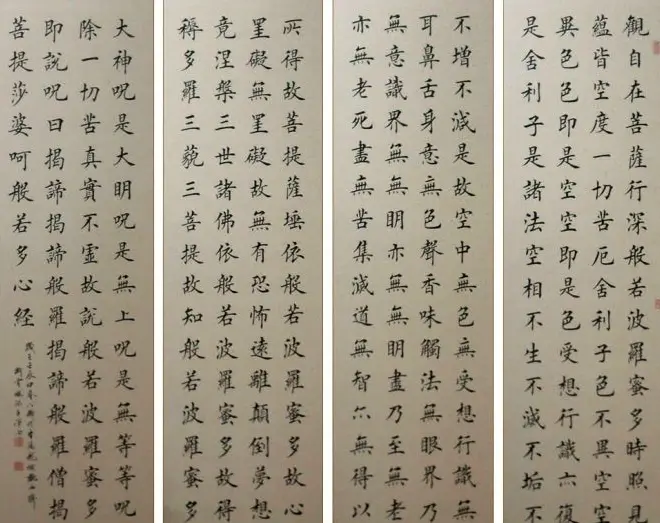 觀自在菩薩行深般若波羅蜜多時照見
蘊皆空度一切苦厄舍利子色不異空空
異色色即是空空即是色受想行識亦復
是舍利子是諸法空相不生不滅不垢不
不增不減是故空中無色無受想行識無
耳鼻舌身意無色聲香味觸法無眼界乃
無意識界無無明亦無無明盡乃至無老
亦無老死盡無苦集滅道無智亦無得以
所得故菩提薩埵依般若波羅蜜多故心
罣礙無罣礙故無有恐怖遠離顛倒夢想
竟涅槃三世諸佛依般若波羅蜜多故得
耨多羅三藐三菩提故知般若波羅蜜多
大神呪是大明呪是無上呪是無等等呪
除一切苦真實不虛故說般若波羅蜜多
即說呪曰揭諦揭諦般羅揭諦般羅僧揭
菩提莎婆呵般若多心経